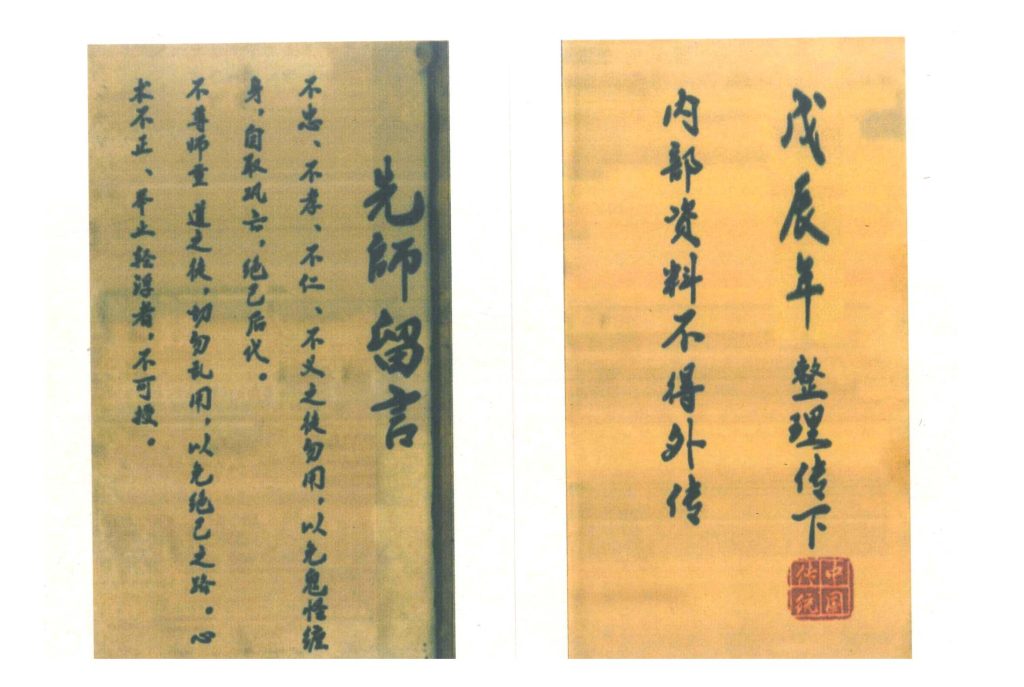 戊辰年 整理传下
内部资料不得外传
中国
传统
先師留言
不忠、不孝、不仁、不义之徒勿用，以免鬼怪缠
身，自取巩亡，绝己后代。
不尊师重 道之徒，切勿乱用，以免绝己之路。心
术不正、举止轻浮者，不可授。